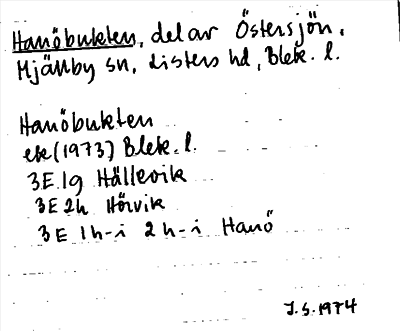 Hanöbukten, del av Östersjön,
Mjällby sn, Listers hd, Blek. l.
Hanöbukten
ek (1973) Blek. l.
3E 1g Hällevik
3E 2h Hörvik
3E 1h-i 2h-i Hanö
J.S. 1974